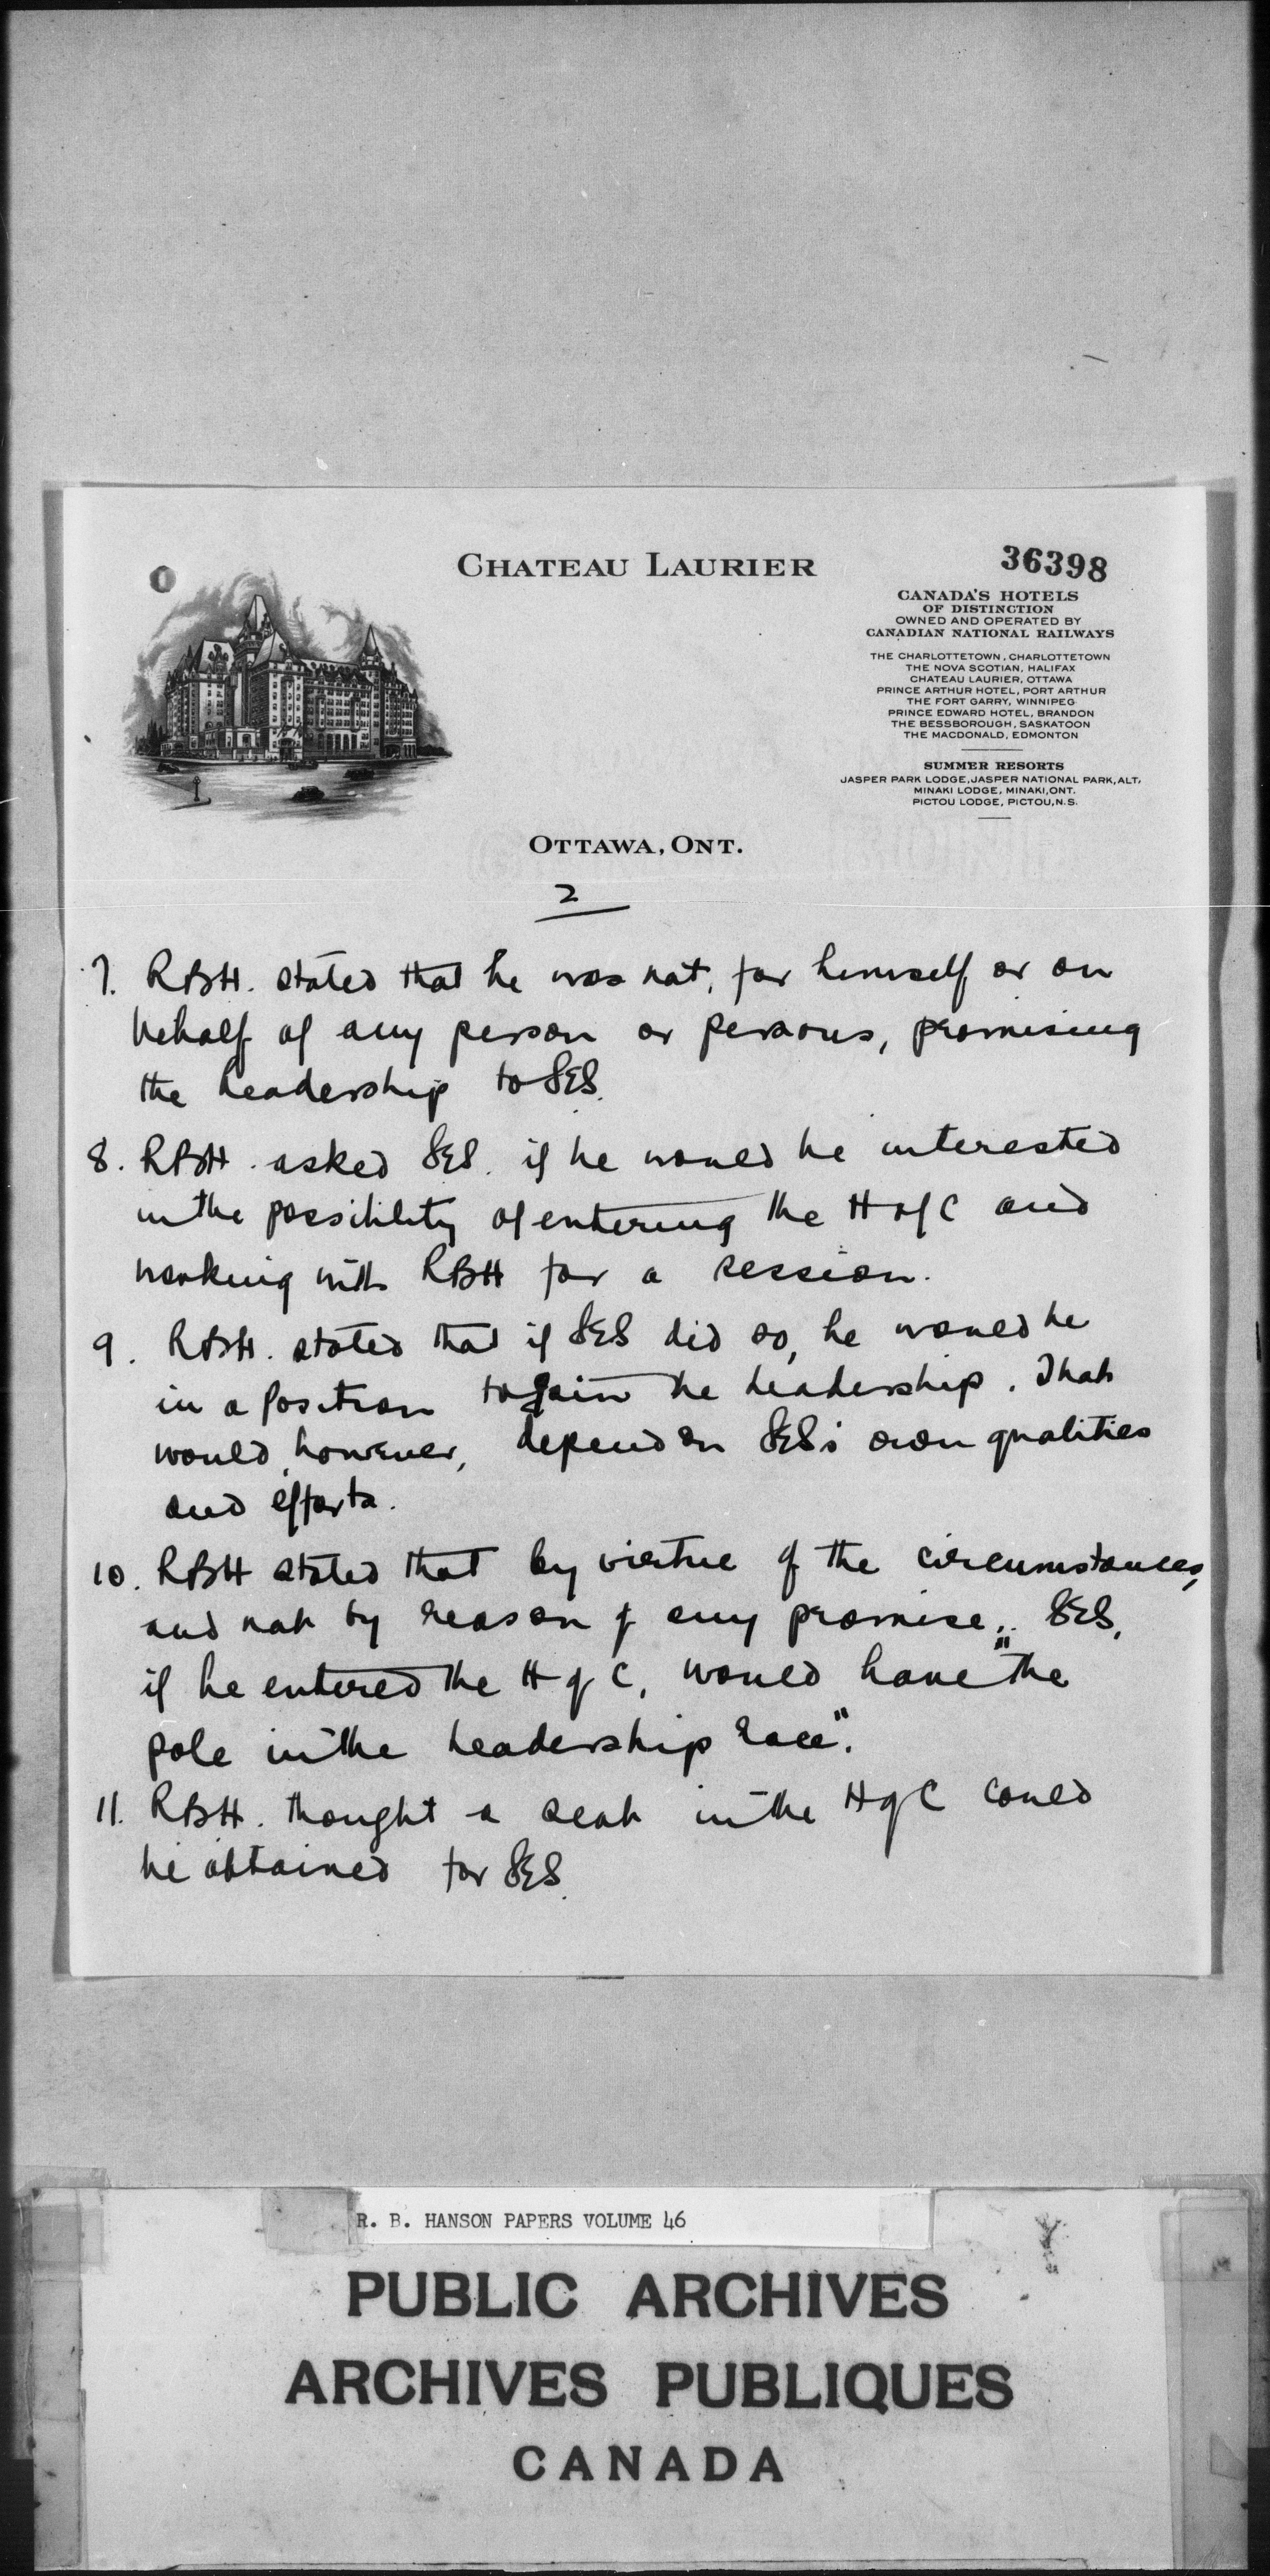 CHATEAU LAURIER
36398
CANADA'S HOTELS
OF DISTINCTION
OWNED AND OPERATED BY
CANADIAN NATIONAL RAILWAYS
THE CHARLOTTETOWN, CHARLOTTETOWN
THE NOVA SCOTIAN, HALIFAX
CHATEAU LAURIER, OTTAWA
PRINCE ARTHUR HOTEL, PORT ARTHUR
THE FORT GARRY, WINNIPEG
PRINCE EDWARD HOTEL, BRANDON
THE BESSBOROUGH, SASKATOON
THE MACDONALD, EDMONTON
SUMMER RESORTS
JASPER PARK LODGE, JASPER NATIONAL PARK, ALT.
MINAKI LODGE, MINAKI, ONT.
PICTOU LODGE, PICTOU, N.S.
OTTAWA, ONT.
2
7. RBH. stated that he was not, for himself or on
behalf of any person or persons, promising
the leadership to SES.
8. RBH. asked SES. if he would be interested
in the possibility of entering the H of C and
working with RBH for a session.
9. RBH. stated that if SES did so, he would be
in a position to gain the leadership. That
would, however, depend on SES's own qualities
and efforts.
10. RBH stated that by virtue of the circumstances,
and not by reason of any promise, SES,
if he entered the H of C, would have "the
pole in the leadership race".
11. RBH. thought a seat in the H of C could
be obtained for SES.
R. B. HANSON PAPERS VOLUME 46
PUBLIC ARCHIVES
ARCHIVES PUBLIQUES
CANADA